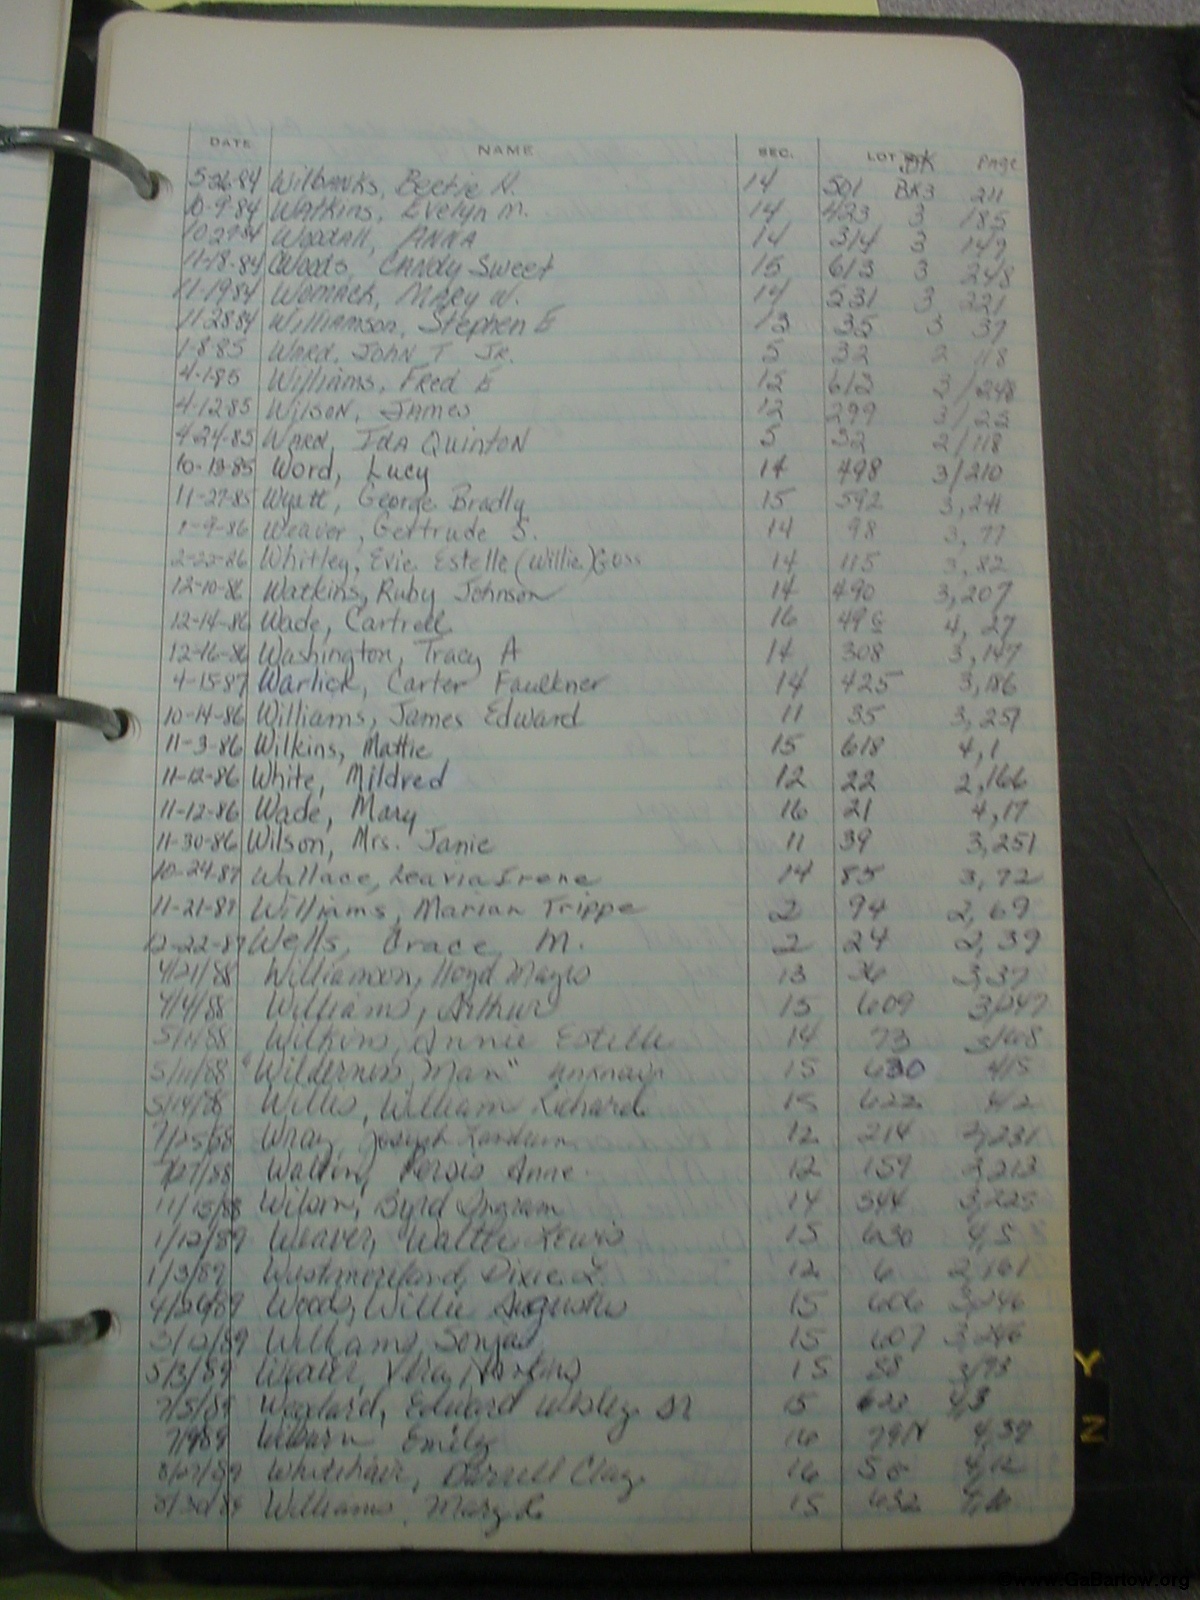 DATE NAME SEC. LOT BK PAGE
5-26-84 Wilbanks, Beetie N. 14 501 BK3 211
10-9-84 Watkins, Evelyn M. 14 423 3 185
10-29-84 Woodall, ANNA 14 314 3 149
11-18-84 Woods, CANDY Sweet 15 613 3 248
11-19-84 Womack, MARY W. 14 531 3 221
11-28-84 Williamson, Stephen E 13 35 3 37
1-8-85 WARD, JOHN T JR. 5 32 2 118
4-1-85 Williams, FRed E 15 613 3/248
4-12-85 WilsoN, JAMES 12 299 3/25
4-24-85 WARd, IdA QuintoN 5 32 2/118
10-13-85 Word, Lucy 14 498 3/210
11-27-85 Wyatt, George Bradly 15 592 3,241
1-9-86 Weaver, Gertrude S. 14 98 3,77
2-22-86 Whitley, Evie Estelle (Willie) Goss 14 115 3,82
12-10-86 Watkins, Ruby Johnson 14 490 3,207
12-14-86 Wade, Cartrell 16 49 4, 27
12-16-86 Washington, Tracy A 14 308 3,147
4-15-87 Warlick, Carter Faulkner 14 425 3,186
10-14-86 Williams, James Edward 11 35 3,251
11-3-86 Wilkins, Mattie 15 618 4,1
11-12-86 White, Mildred 12 22 2,166
11-12-86 Wade, Mary 16 21 4,17
11-30-86 Wilson, Mrs. Janie 11 39 3,251
10-24-87 Wallace, Leavia Irene 14 85 3,72
11-21-87 Williams, Marian Trippe 2 94 2,69
12-22-87 Wells, Grace M. 2 24 2,39
4/21/88 Williamson, Lloyd Mayes 13 36 3,37
4/4/88 Williams, Arthur 15 609 3/247
5/1/88 Wilkins, Annie Estelle 14 73 3/68
5/11/88 "Wilderness Man" unknown 15 630 4/5
5/14/88 Willis, William Richard 15 622 4/2
7/25/88 Wray, Joseph Landrum 12 214 2,231
7/27/88 Walton, Persis Anne 12 159 2,213
11/15/88 Wilson, Byrd Ingram 14 544 3,225
1/12/89 Weaver, Walter Lewis 15 630 4,5
1/3/89 Westmoreland, Dixie L. 12 6 2,161
4/26/89 Woods, Willie Augustus 15 606 3,246
3/12/89 Williams, Sonya 15 607 3,246
5/3/89 Weaver, Hopkins 15 58 3/93
7/5/89 Woodard, Edward Wesley Sr 15 623 4,3
7/9/89 Emily 16 79N 4,39
8/27/89 Whitehair, Darrell Clay 16 4,12
8/30/89 Williams, Mary L. 15 632
Y
N
www.GaBartow.org